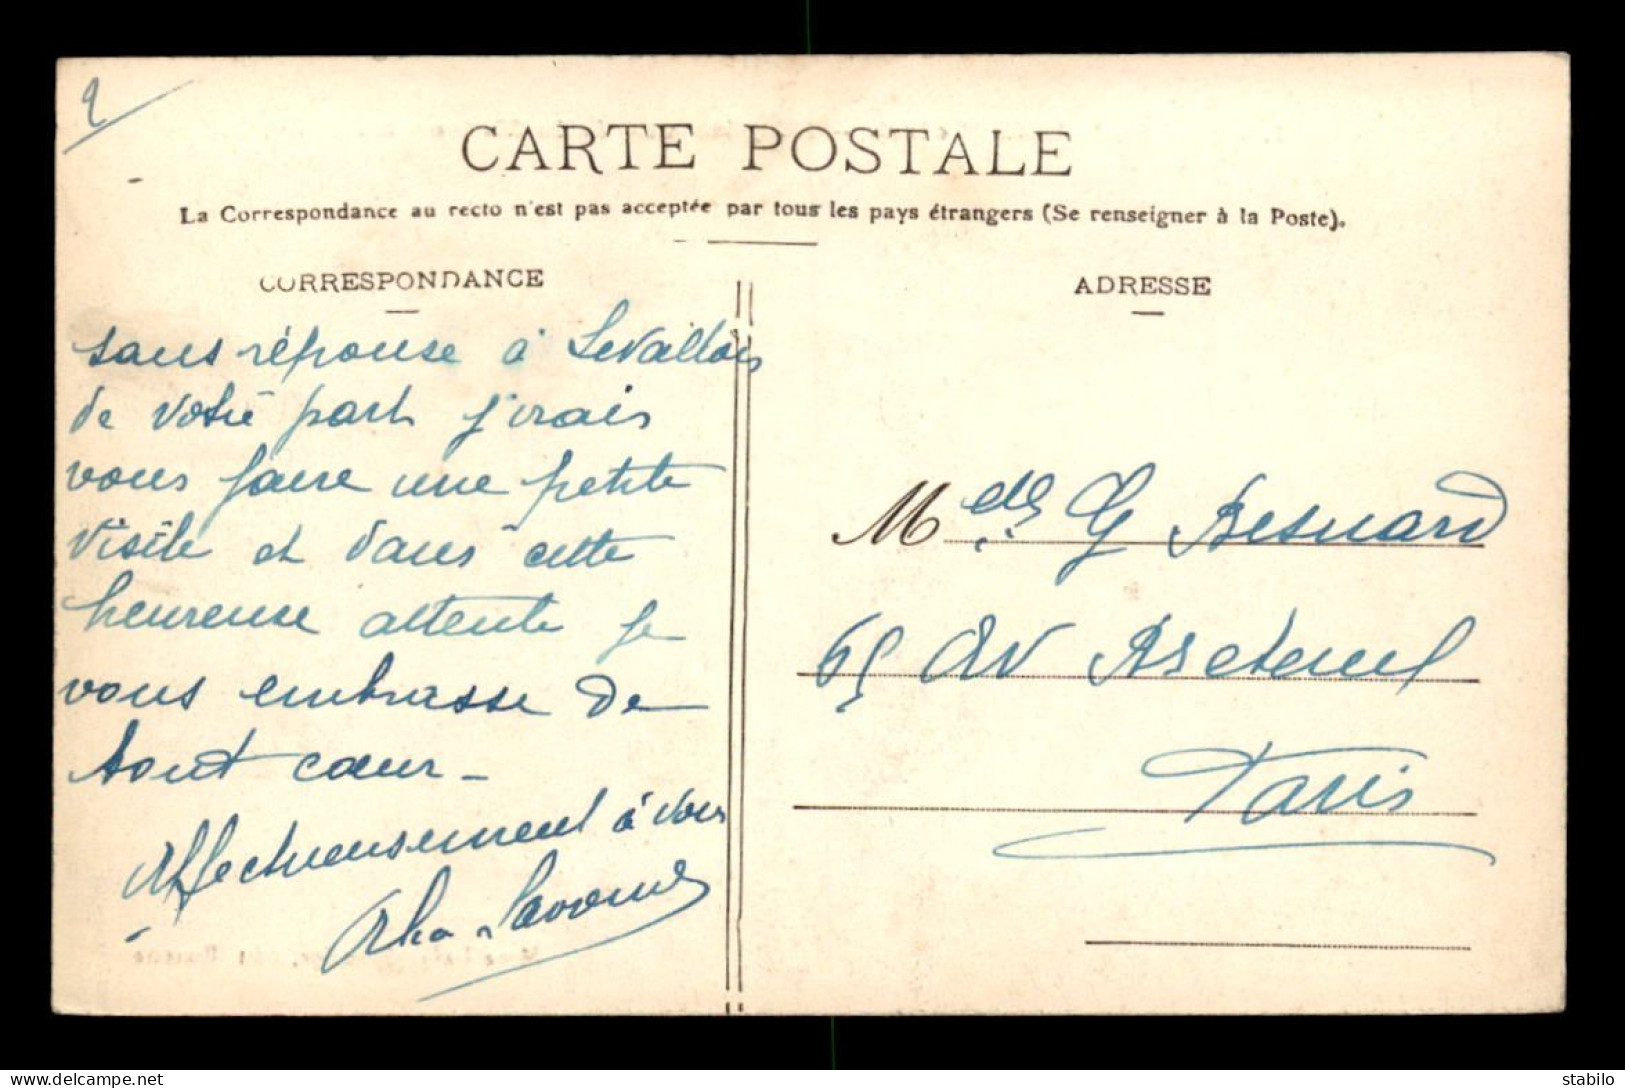 2
CARTE POSTALE
La Correspondance au recto n'est pas acceptée par tous les pays étrangers (Se renseigner à la Poste).
CORRESPONDANCE
sans réponse à Levallois
de votre part j'irais
vous faire une petite
visite et dans cette
heureuse attente je
vous embrasse de
tout cœur -
Affectueusement à vous
ADRESSE
M G Besnard
65 Av Breteuil
Paris
delcampe.net
stabilo